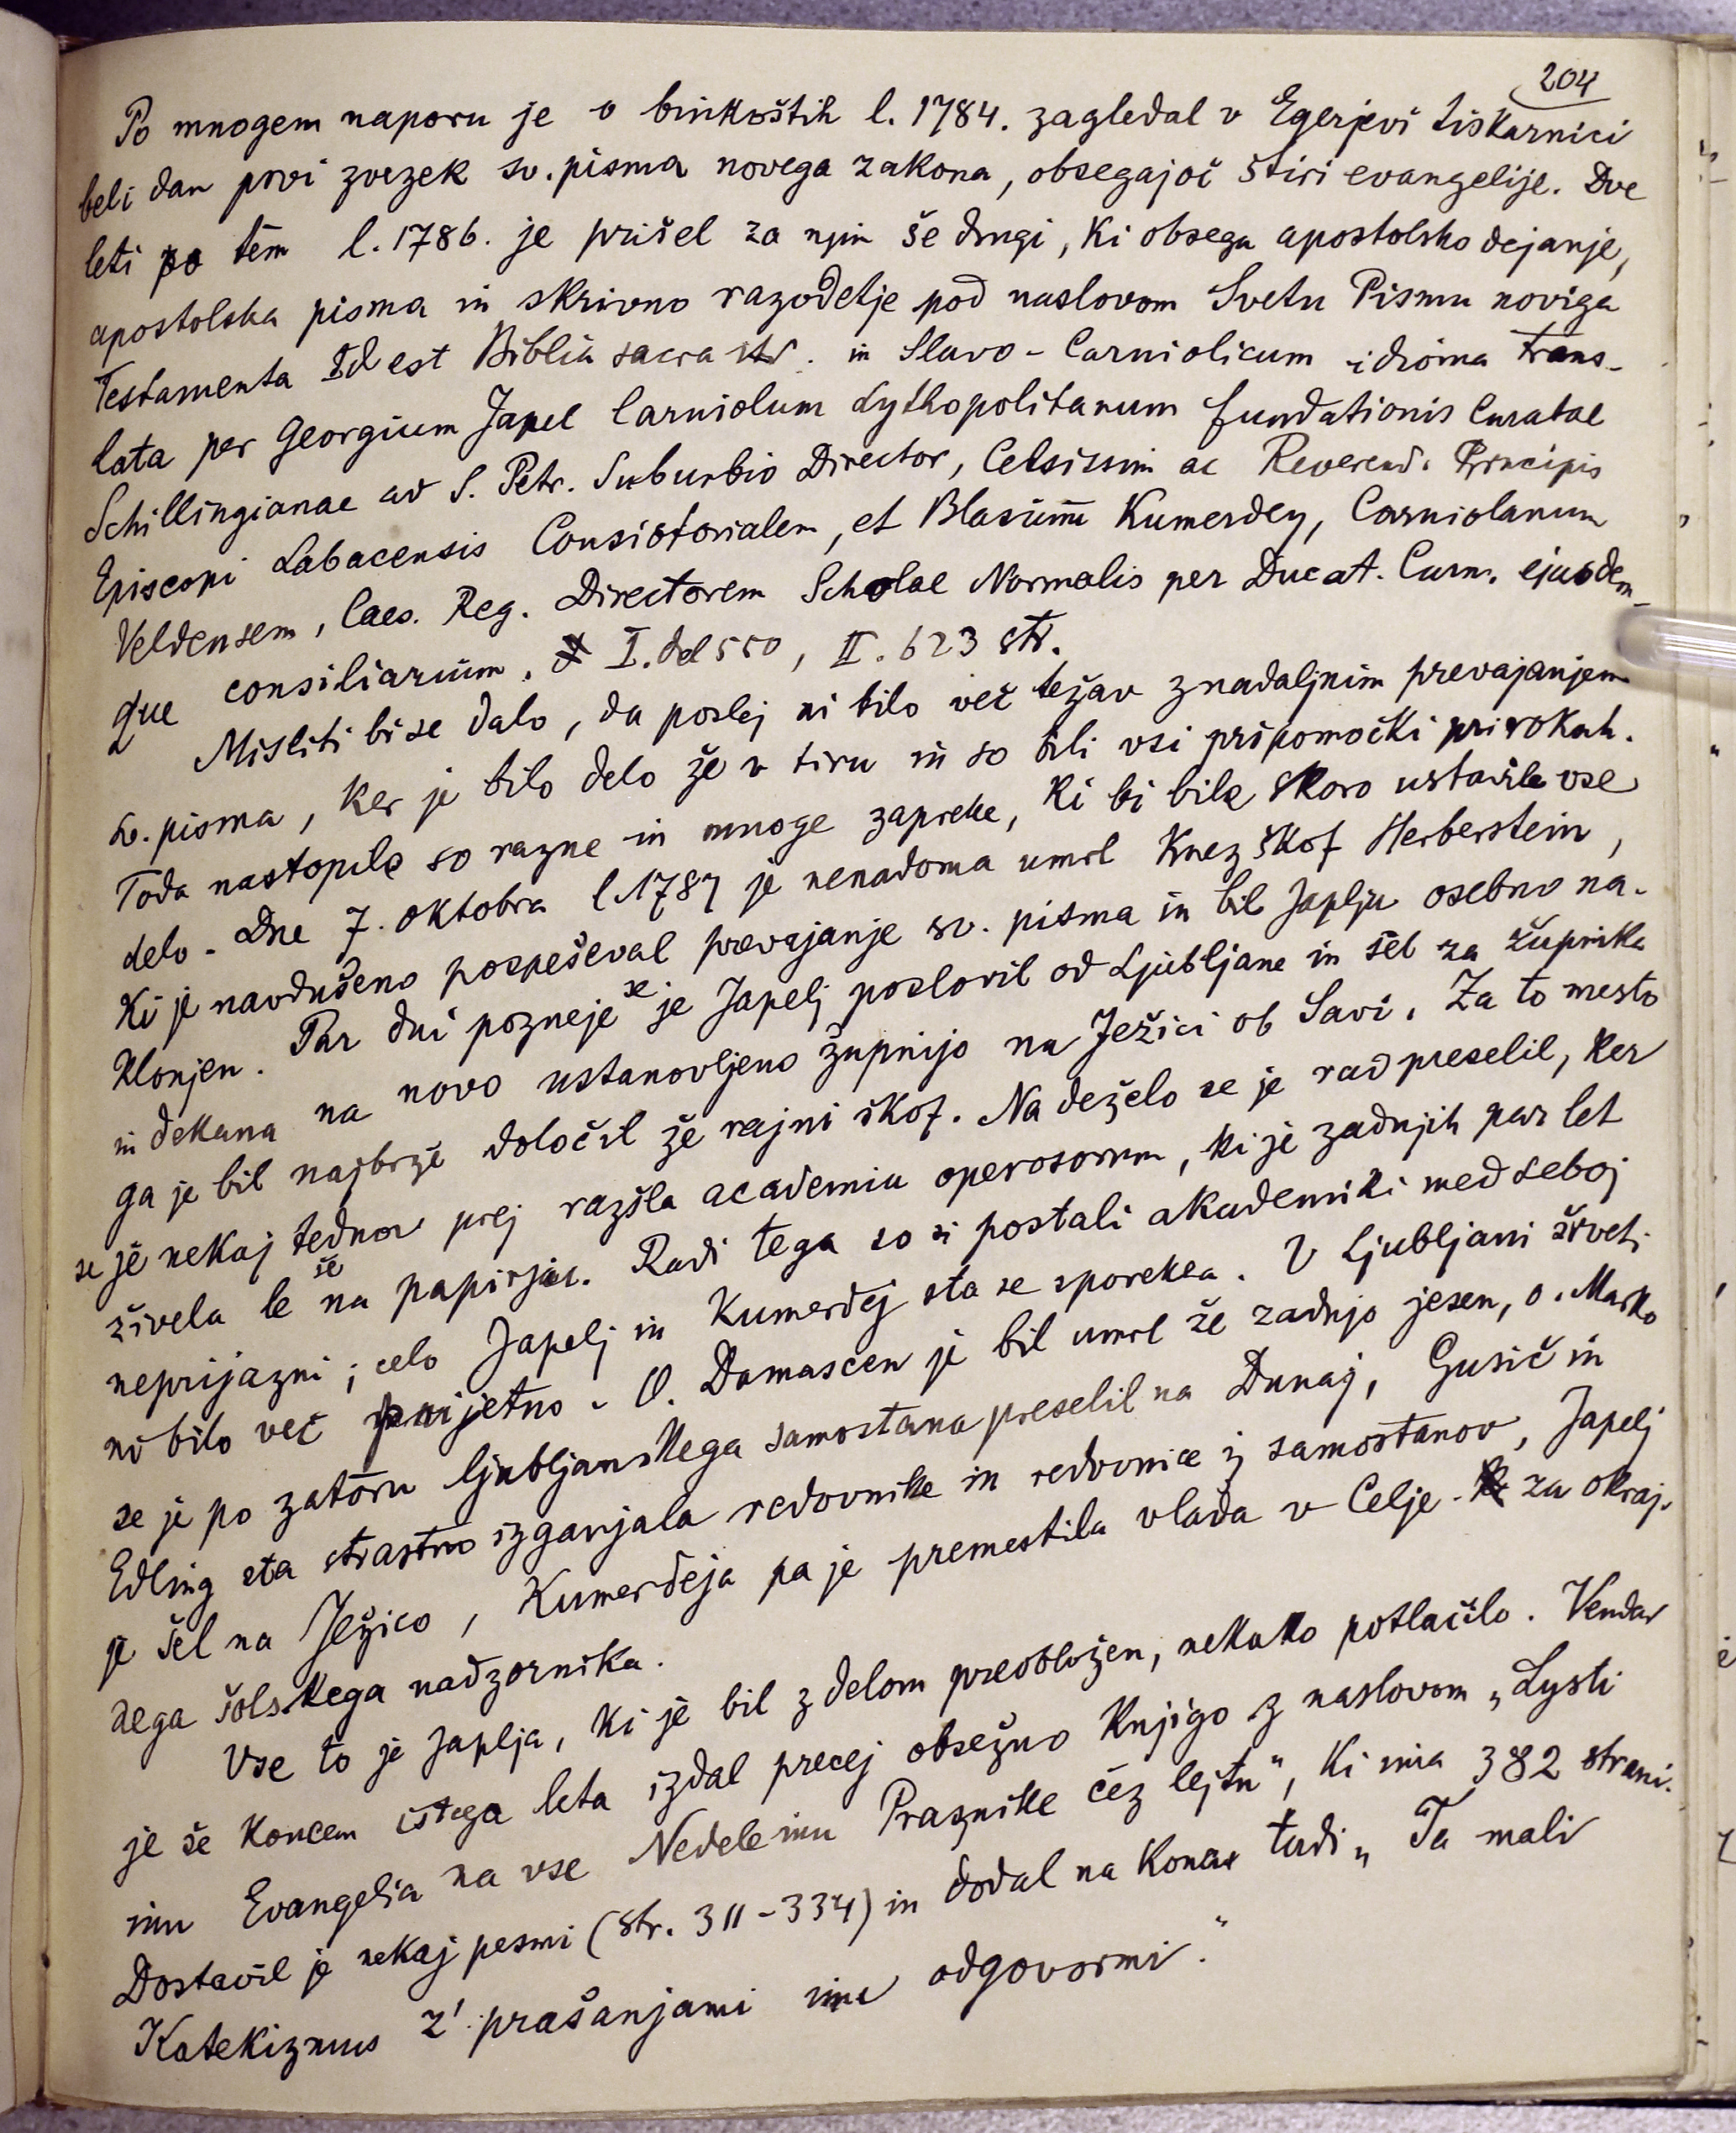 204
Po mnogem naporu je o binkoštih l. 1784. zagledal v Egerjevi tiskarnici
beli dan prvi zvezek sv. pisma novega zakona, obsegajoč štiri evangelije. Dve
leti po tem l. 1786. je prišel za njim še drugi, ki obsega apostolsko dejanje,
apostolska pisma in skrivno razodetje pod naslovom Svetu Pismu noviga
Testamenta Id est Biblia sacra in Slavo-Carniolicum idioma trans-
lata per Georgium Japel Carniolum Lythopolitanum fundationis Curatae
Schillingianae ad S. Petr. Suburbio Director, Celsissim ac Reverend. Principis
Episcopi Labacensis Consistorialem, et Blasium Kumerdey, Carniolanum
Veldensem, Caes. Reg. Directorem Scholae Normalis per Ducat. Carn. ejusdem-
que consiliarium. I. del 550, II. 623 str.
Misliti bi se dalo, da poslej ni bilo več težav z nadaljnim prevajanjem
sv. pisma, ker je bilo delo že v tiru in so bili vsi pripomočki pri rokah.
Toda nastopile so razne in mnoge zapreke, ki bi bile skoro ustavile vse
delo. Dne 7. oktobra l. 1787 je nenadoma umrl knez škof Herberstein,
ki je navdušeno pospeševal prevajanje sv. pisma in bil Japlju osebno na-
klonjen. Par dni pozneje se je Japelj poslovil od Ljubljane in šel za župnika
in dekana na novo ustanovljeno župnijo na Ježici ob Savi. Za to mesto
ga je bil najbrže določil že rajni škof. Na deželo se je rad preselil, ker
se je nekaj tednov prej razšla academia operosorum, ki je zadnjih par let
živela le še na papirju. Radi tega so si postali akademiki med seboj
neprijazni; celo Japelj in Kumerdej sta se sporekla. V Ljubljani živeti
ni bilo več prijetno. O. Damascen je bil umrl že zadnjo jesen, o. Marko
se je po zatoru ljubljanskega samostana preselil na Dunaj, Gusič in
Edling sta strastno izganjala redovnike in redovnice iz samostanov, Japelj
je šel na Ježico, Kumerdeja pa je premestila vlada v Celje za okraj-
nega šolskega nadzornika.
Vse to je Japlja, ki je bil z delom preobložen, nekako potlačilo. Vendar
je še koncem istega leta izdal precej obsežno knjigo z naslovom „Lysti
inu Evangelia na vse Nedele inu Praznike čez lejtu", ki ima 382 strani.
Dostavil je nekaj pesmi (str. 311-334) in dodal na koncu tudi „Ta mali
Katekizmus z' prašanjami inu odgovormi."